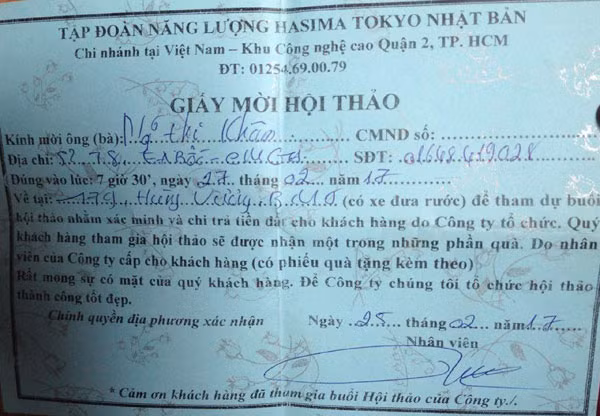 TẬP ĐOÀN NĂNG LƯỢNG HASIMA TOKYO NHẬT BẢN
Chi nhánh tại Việt Nam – Khu Công nghệ cao Quận 2, TP. HCM
ĐT: 01254.69.00.79
GIẤY MỜI HỘI THẢO
Kính mời ông (bà): Ngô thị Khâm CMND số:
Địa chỉ: 52 T.8, SĐT: 01648.419028
(Đúng vào lúc: 7 giờ 30', ngày 27 tháng 02 năm 17
Về tại: 179 Hùng (có xe đưa rước) để tham dự buổi
hội thảo nhằm xác minh và chi trả tiền đất cho khách hàng do Công ty tổ chức. Quý
khách hàng tham gia hội thảo sẽ được nhận một trong những phần quà. Do nhân
viên của Công ty cấp cho khách hàng (có phiếu quà tặng kèm theo)
Rất mong sự có mặt của quý khách hàng. Để Công ty chúng tôi tổ chức hội thảo
thành công tốt đẹp.
Chính quyền địa phương xác nhận Ngày 25 tháng 02 năm 17
Nhân viên
* Cảm ơn khách hàng đã tham gia buổi Hội thảo của Công ty./.